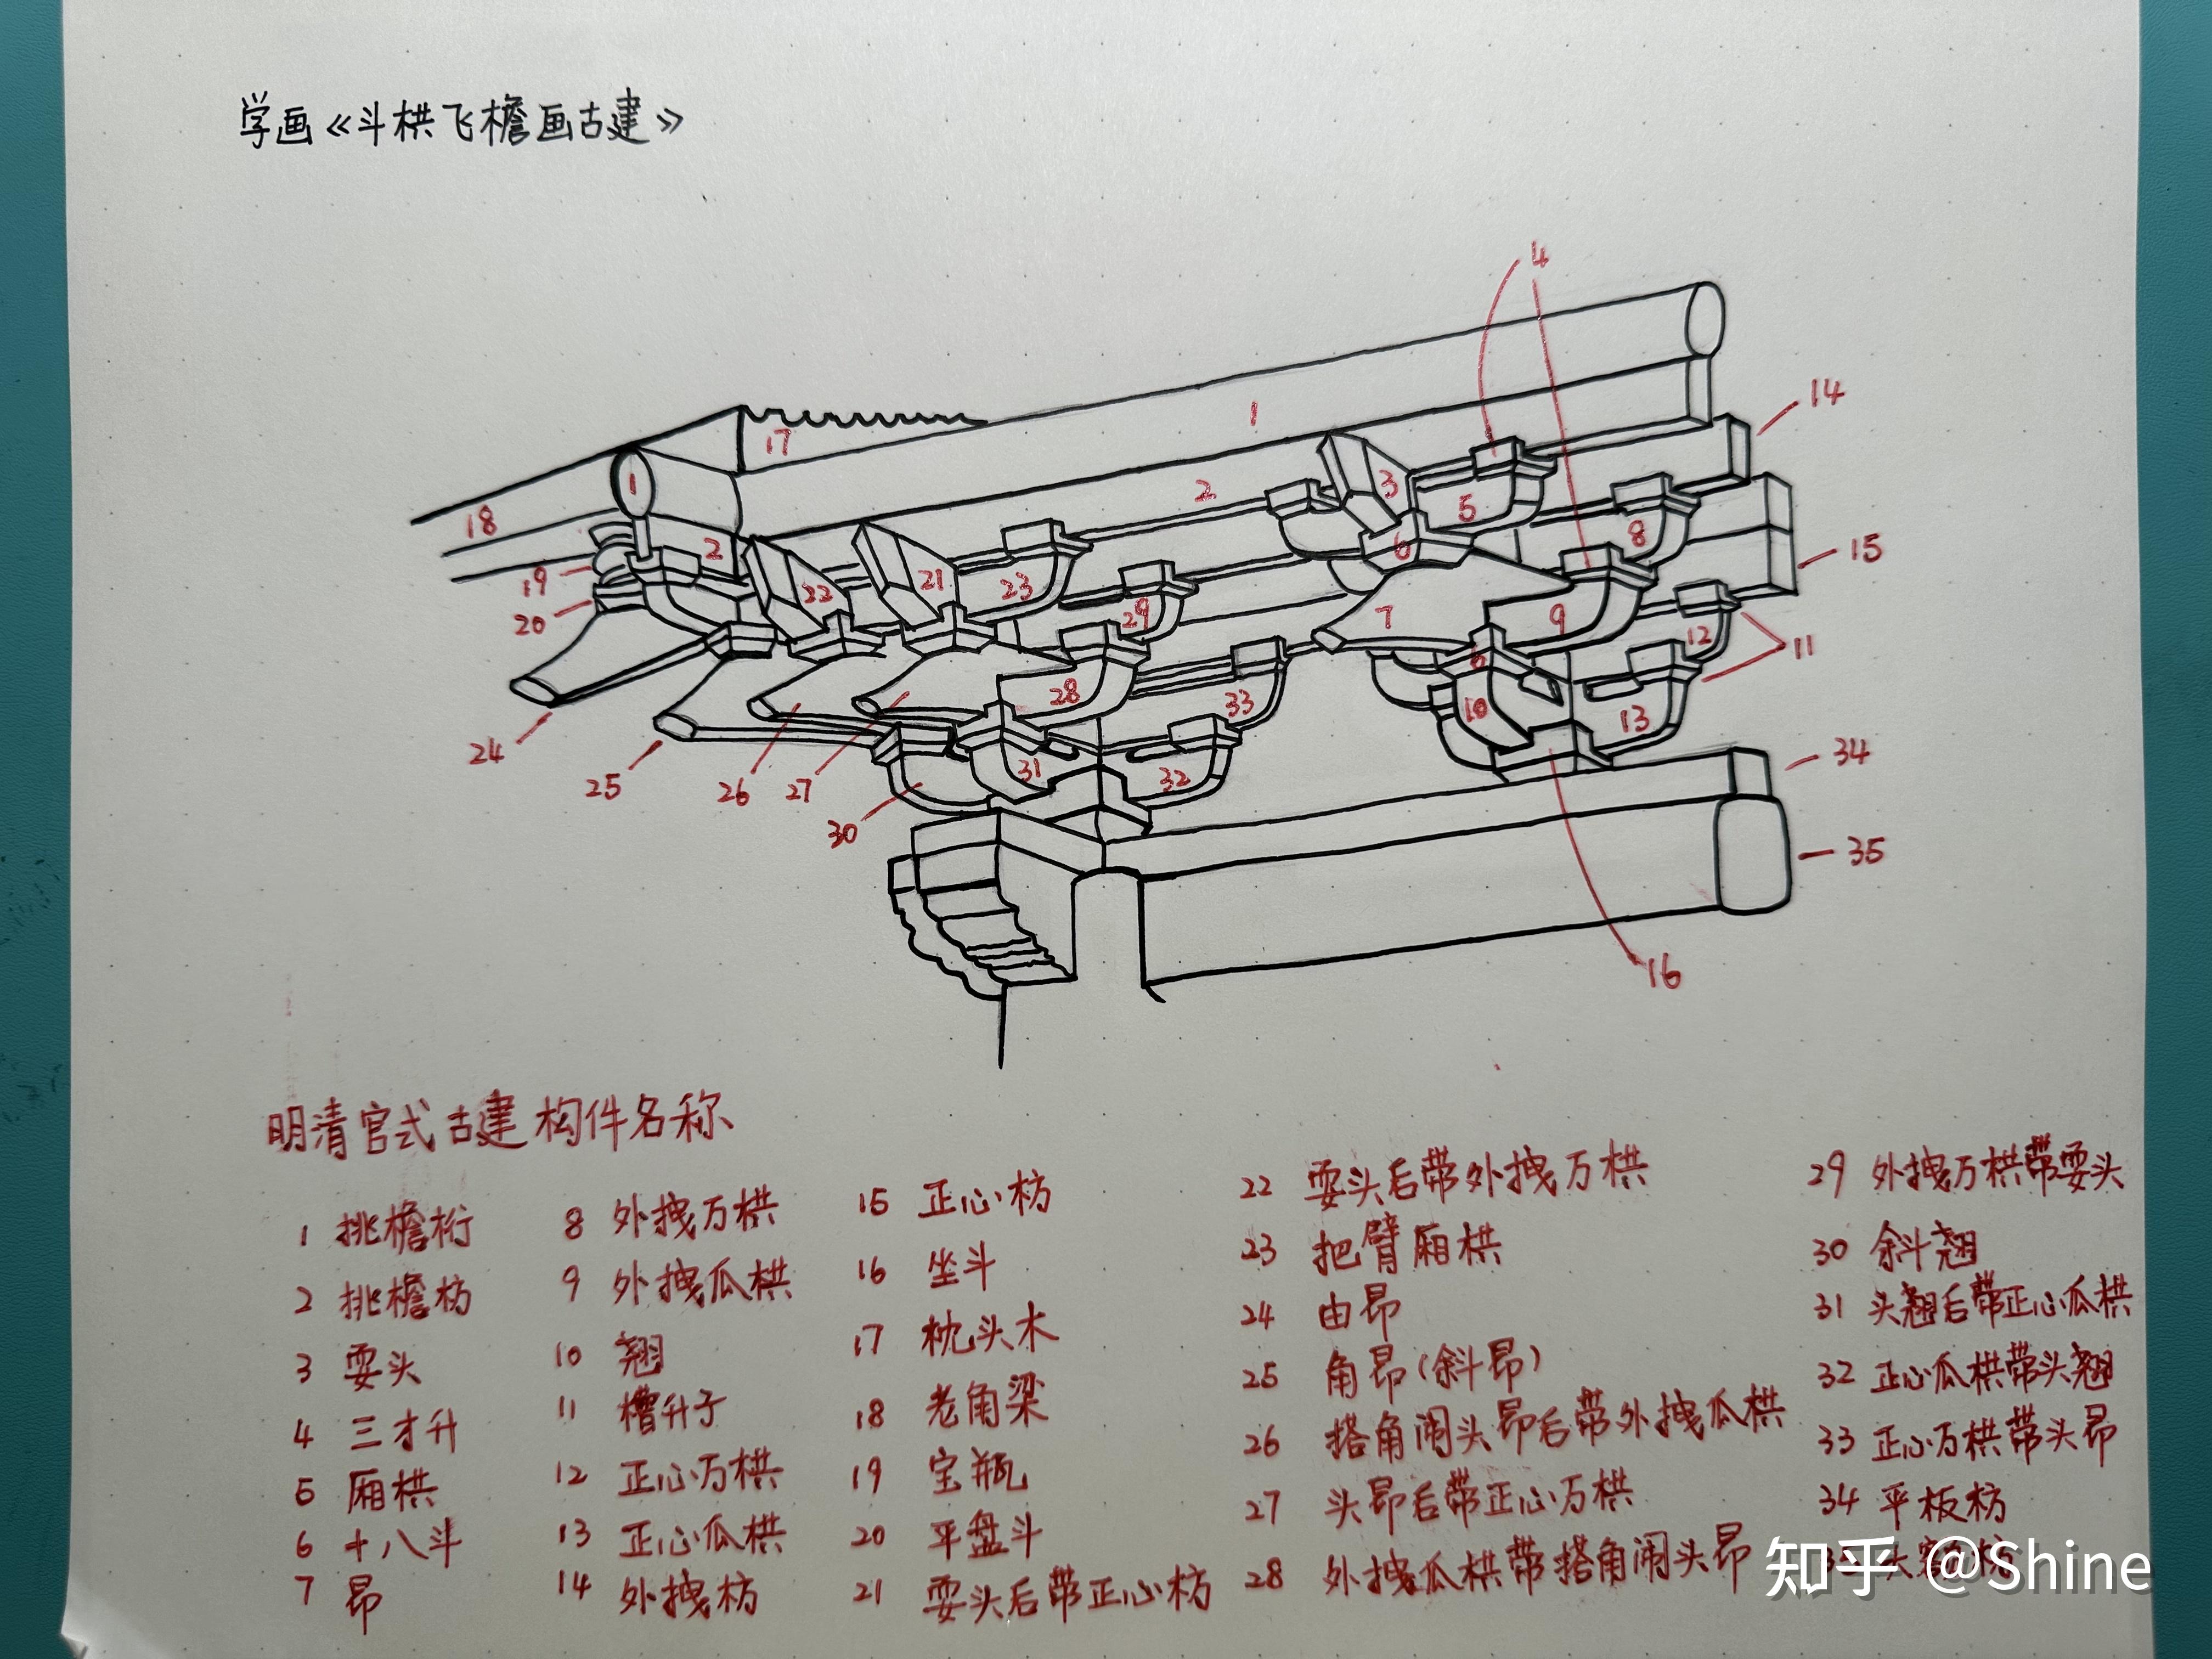 学画《斗栱飞檐画古建》
4
14
1
17
3
2
5
1
18
8
2
6
15
19
22
21
23
29
7
9
20
12
11
6
28
33
10
13
24
34
31
32
25
26
27
30
35
16
明清官式古建构件名称
1 挑檐桁
2 挑檐枋
3 耍头
4 三才升
5 厢栱
6 十八斗
7 昂
8 外拽万栱
9 外拽瓜栱
10 翘
11 槽升子
12 正心万栱
13 正心瓜栱
14 外拽枋
15 正心枋
16 坐斗
17 枕头木
18 老角梁
19 宝瓶
20 平盘斗
21 耍头后带正心枋
22 耍头后带外拽万栱
23 把臂厢栱
24 由昂
25 角昂(斜昂)
26 搭角闹头昂后带外拽瓜栱
27 头昂后带正心万栱
28 外拽瓜栱带搭角闹头昂
29 外拽万栱带耍头
30 斜翘
31 头翘后带正心瓜栱
32 正心瓜栱带头翘
33 正心万栱带头昂
34 平板枋
知乎 @Shine